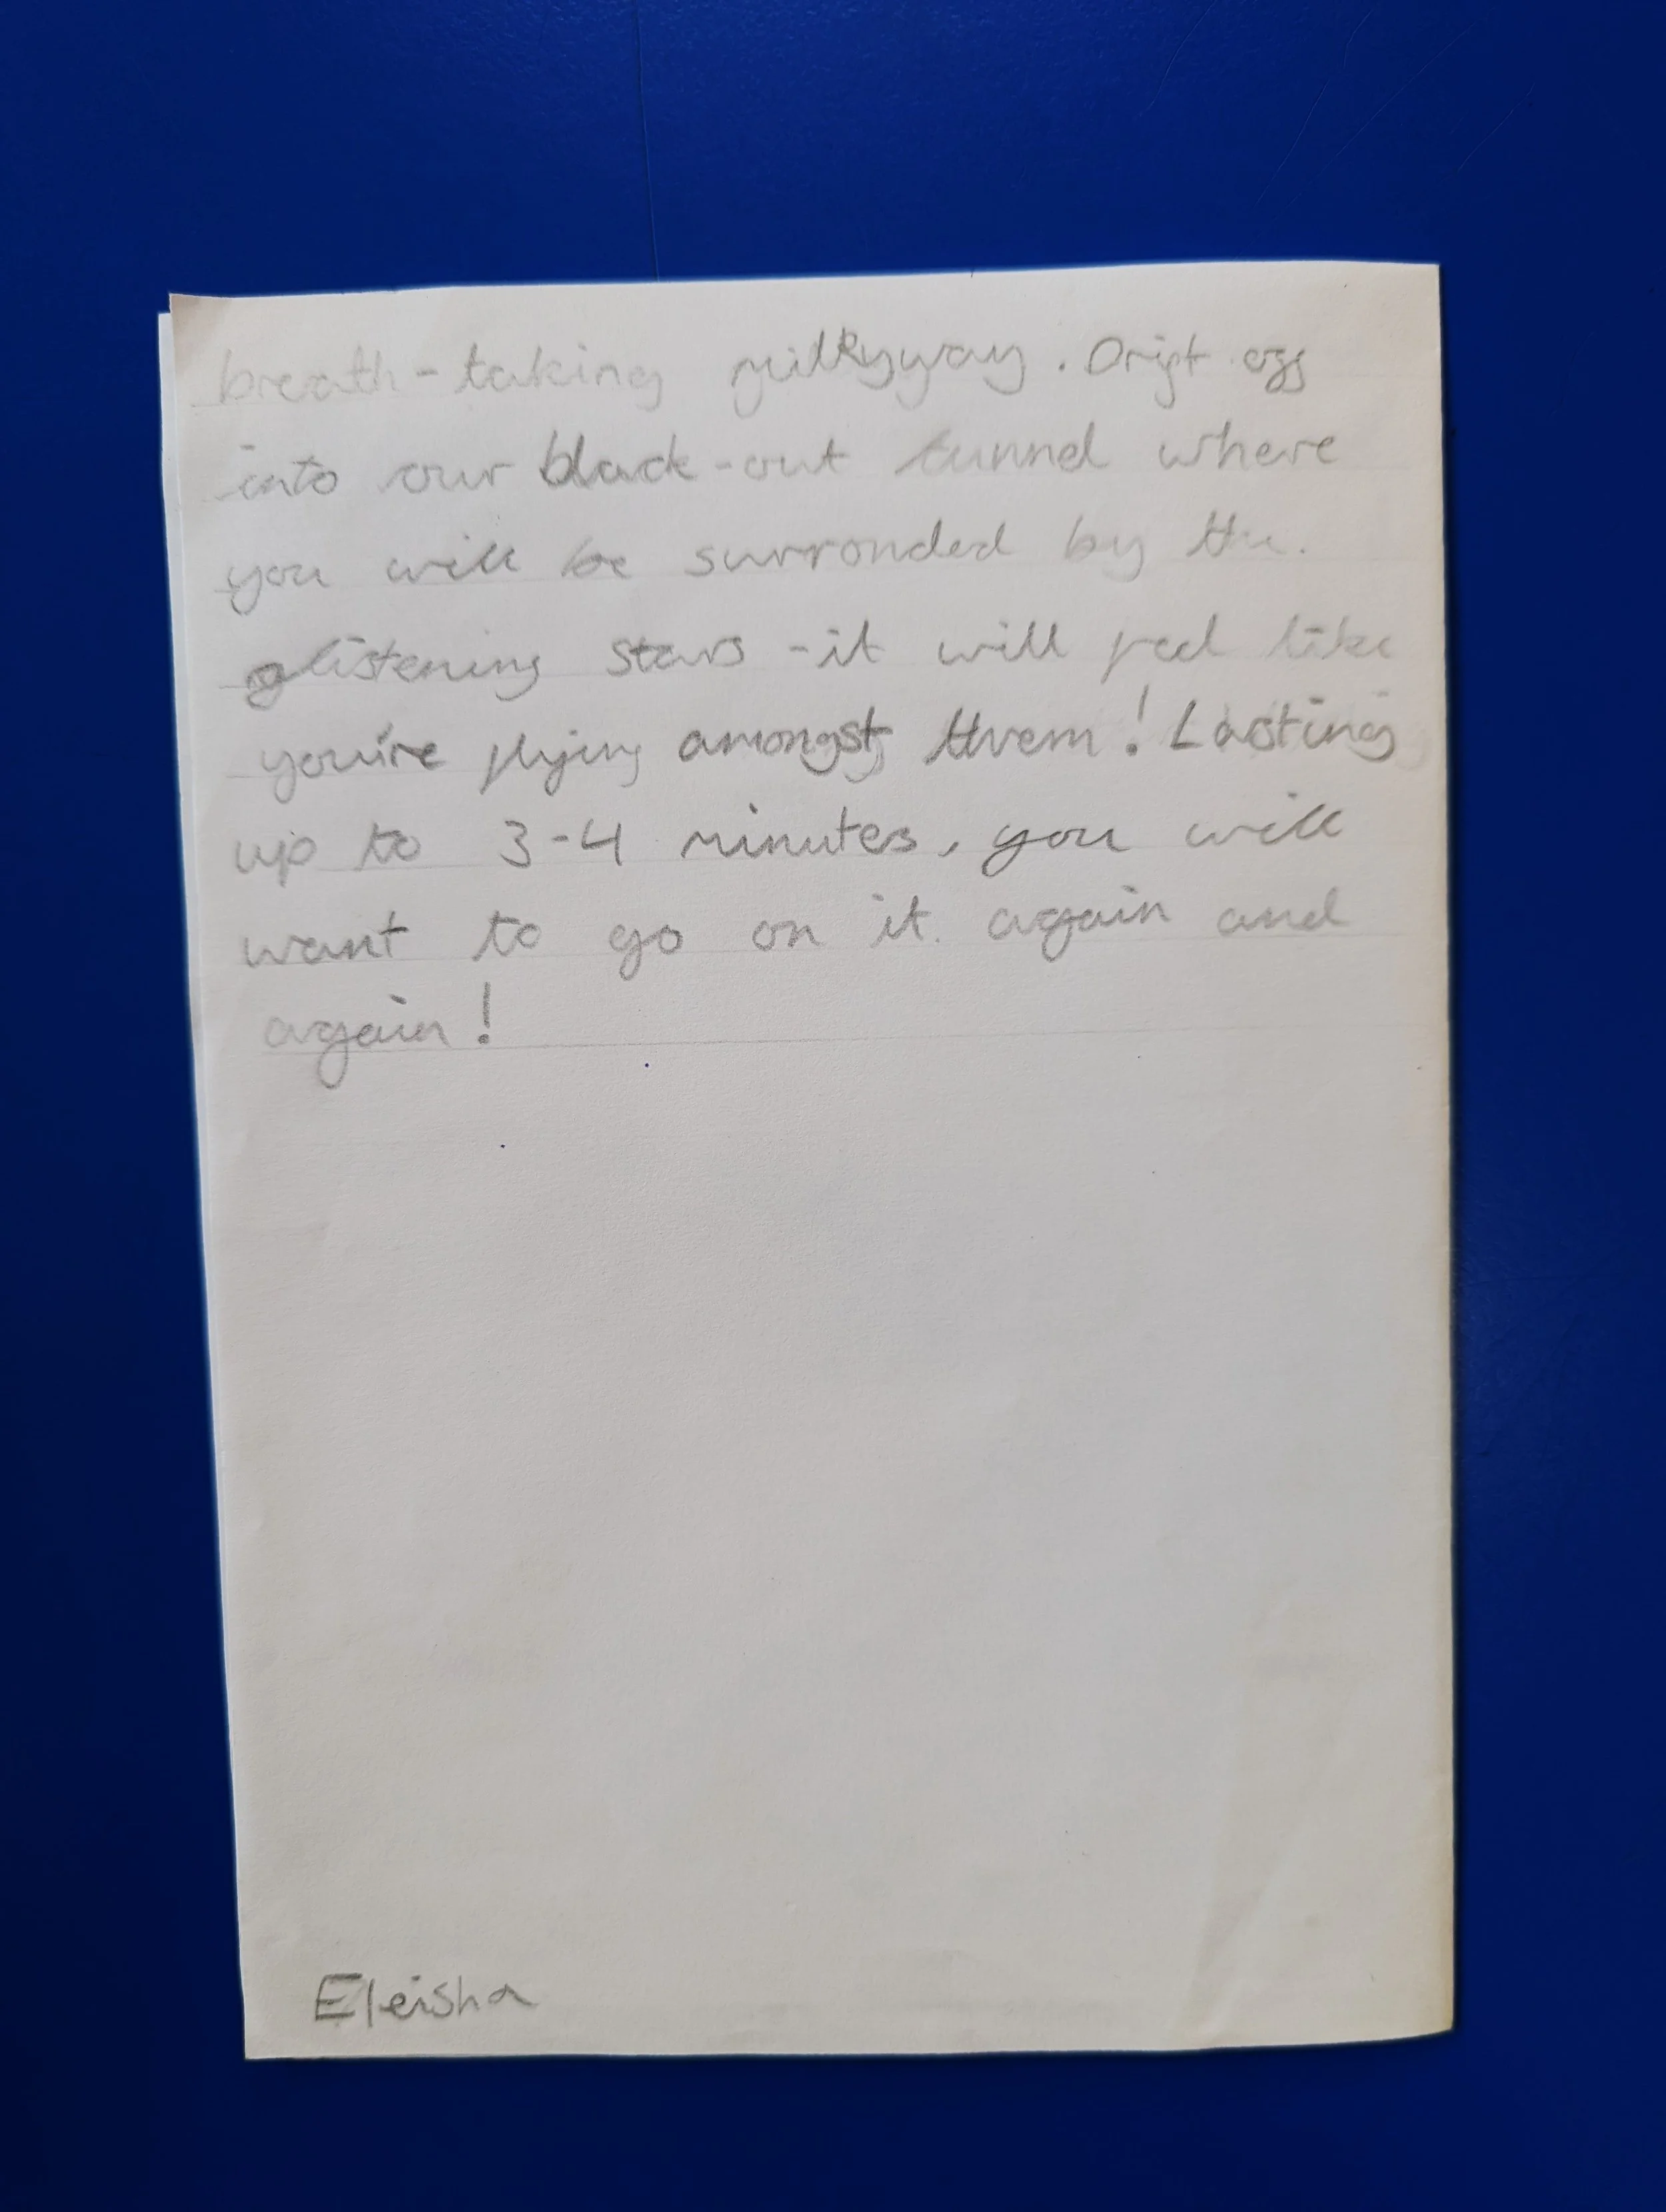 breath-taking milkyway. Drift off
into our black-out tunnel where
you will be surronded by the
glistening stars - it will feel like
you're flying amongst them! Lasting
up to 3-4 minutes, you will
want to go on it again and
again!
Eleisha